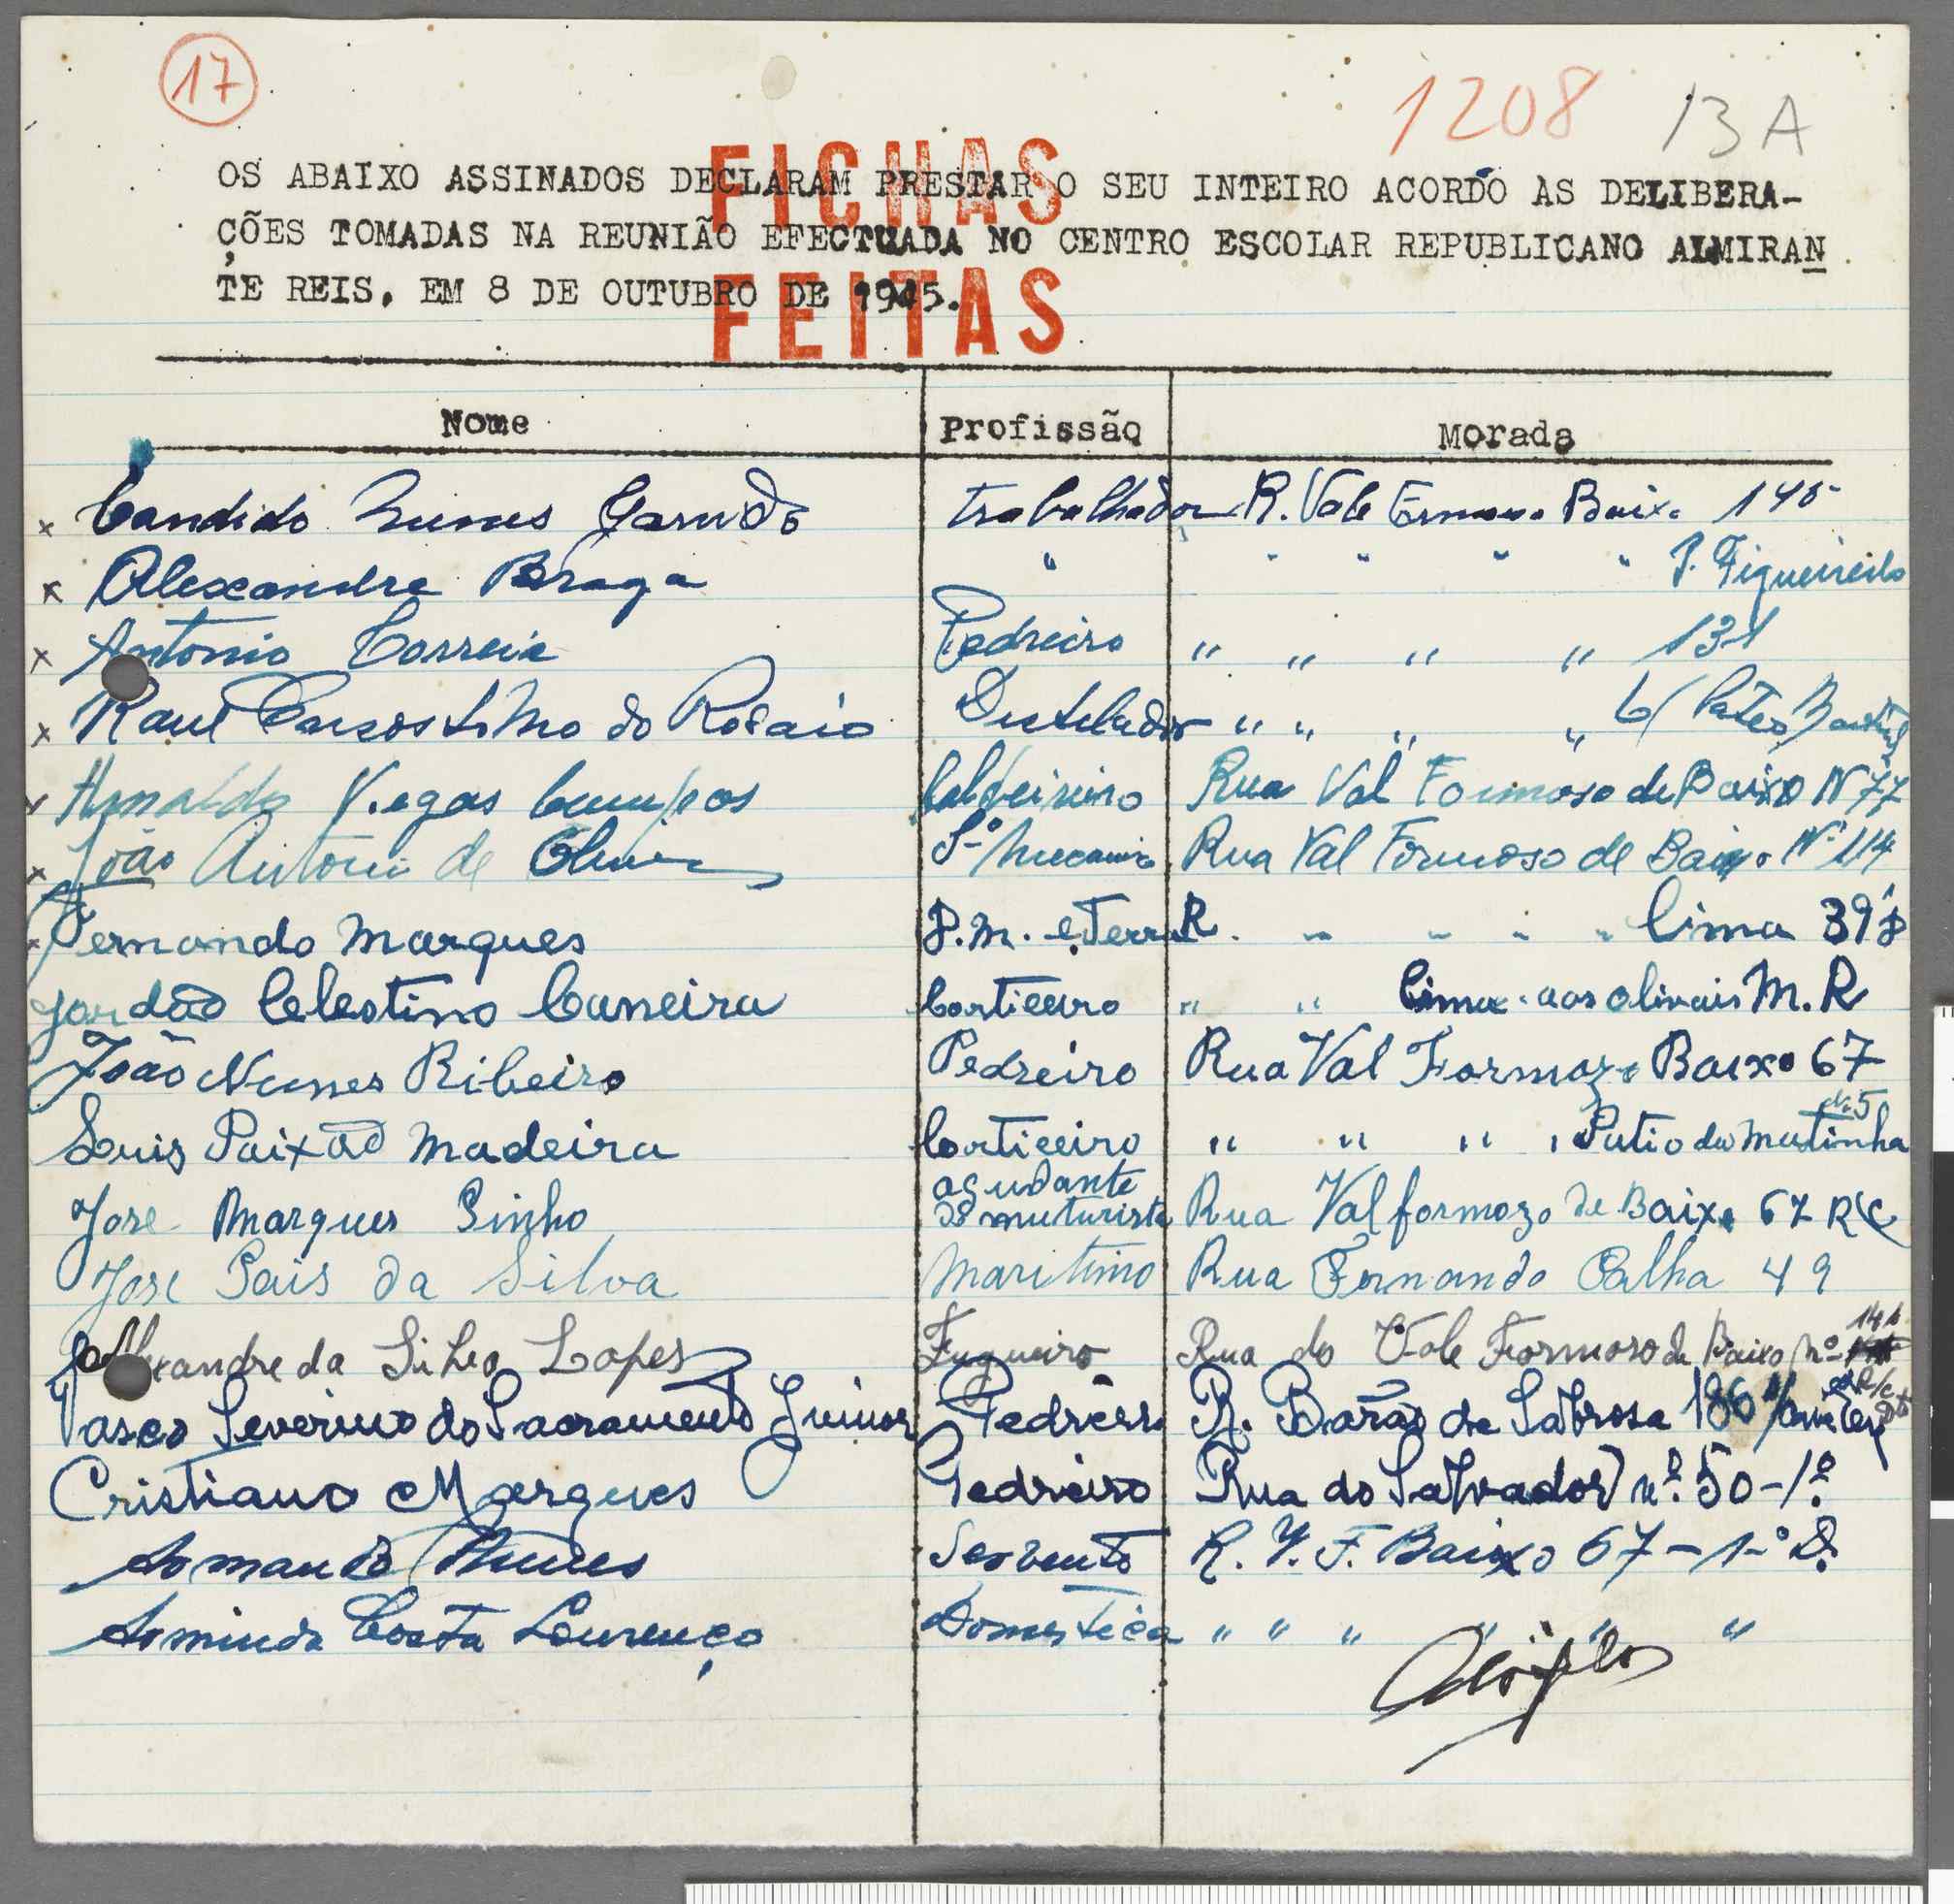 17
1208 13A
FICHAS
OS ABAIXO ASSINADOS DECLARAM PRESTAR O SEU INTEIRO ACORDO AS DELIBERA-
ÇÕES TOMADAS NA REUNIÃO EFECTUADA NO CENTRO ESCOLAR REPUBLICANO ALMIRAN
TE REIS, EM 8 DE OUTUBRO DE 1945.
FEITAS
Nome Profissão Morada
x Candido Nunes trabalhador R. Vale Baixo
x Alexandre Braga " " " " " P. Figueiredo
x Antonio Correia Pedreiro " " " " 131
x Raul do Rosario " " " " Pateo
x Arnaldo Viegas Campos Rua Val Formoso de Baixo Nº 77
x João Antonio de Rua Val Formoso de Baixo Nº 114
x Fernando Marques P.M. R. " " " " Cima
Jordão Celestino Corticeiro " " Cima aos olivais M.R
João Nunes Ribeiro Pedreiro Rua Val Formozo Baixo 67
Luis Paixão Madeira Corticeiro " " " " Patio da Matinha Nº 5
Jose Marques Pinho ajudante de muturista Rua Val formozo de Baixo 67 R/C
Jose Pais da Silva Maritimo Rua Fernando Palha 49
Alexandre da Silva Lopes Fugueiro Rua do Vale Formoso de Baixo nº
Vasco Severino do Sacramento Junior Pedreiro R. Barão de Sabrosa 186
Cristiano Marques Pedreiro Rua do Salvador nº. 50-1º.
Armando Nunes Servente R. V. F. Baixo 67-1-º D.
Arminda Costa Lourenço Domestica " " " " " "